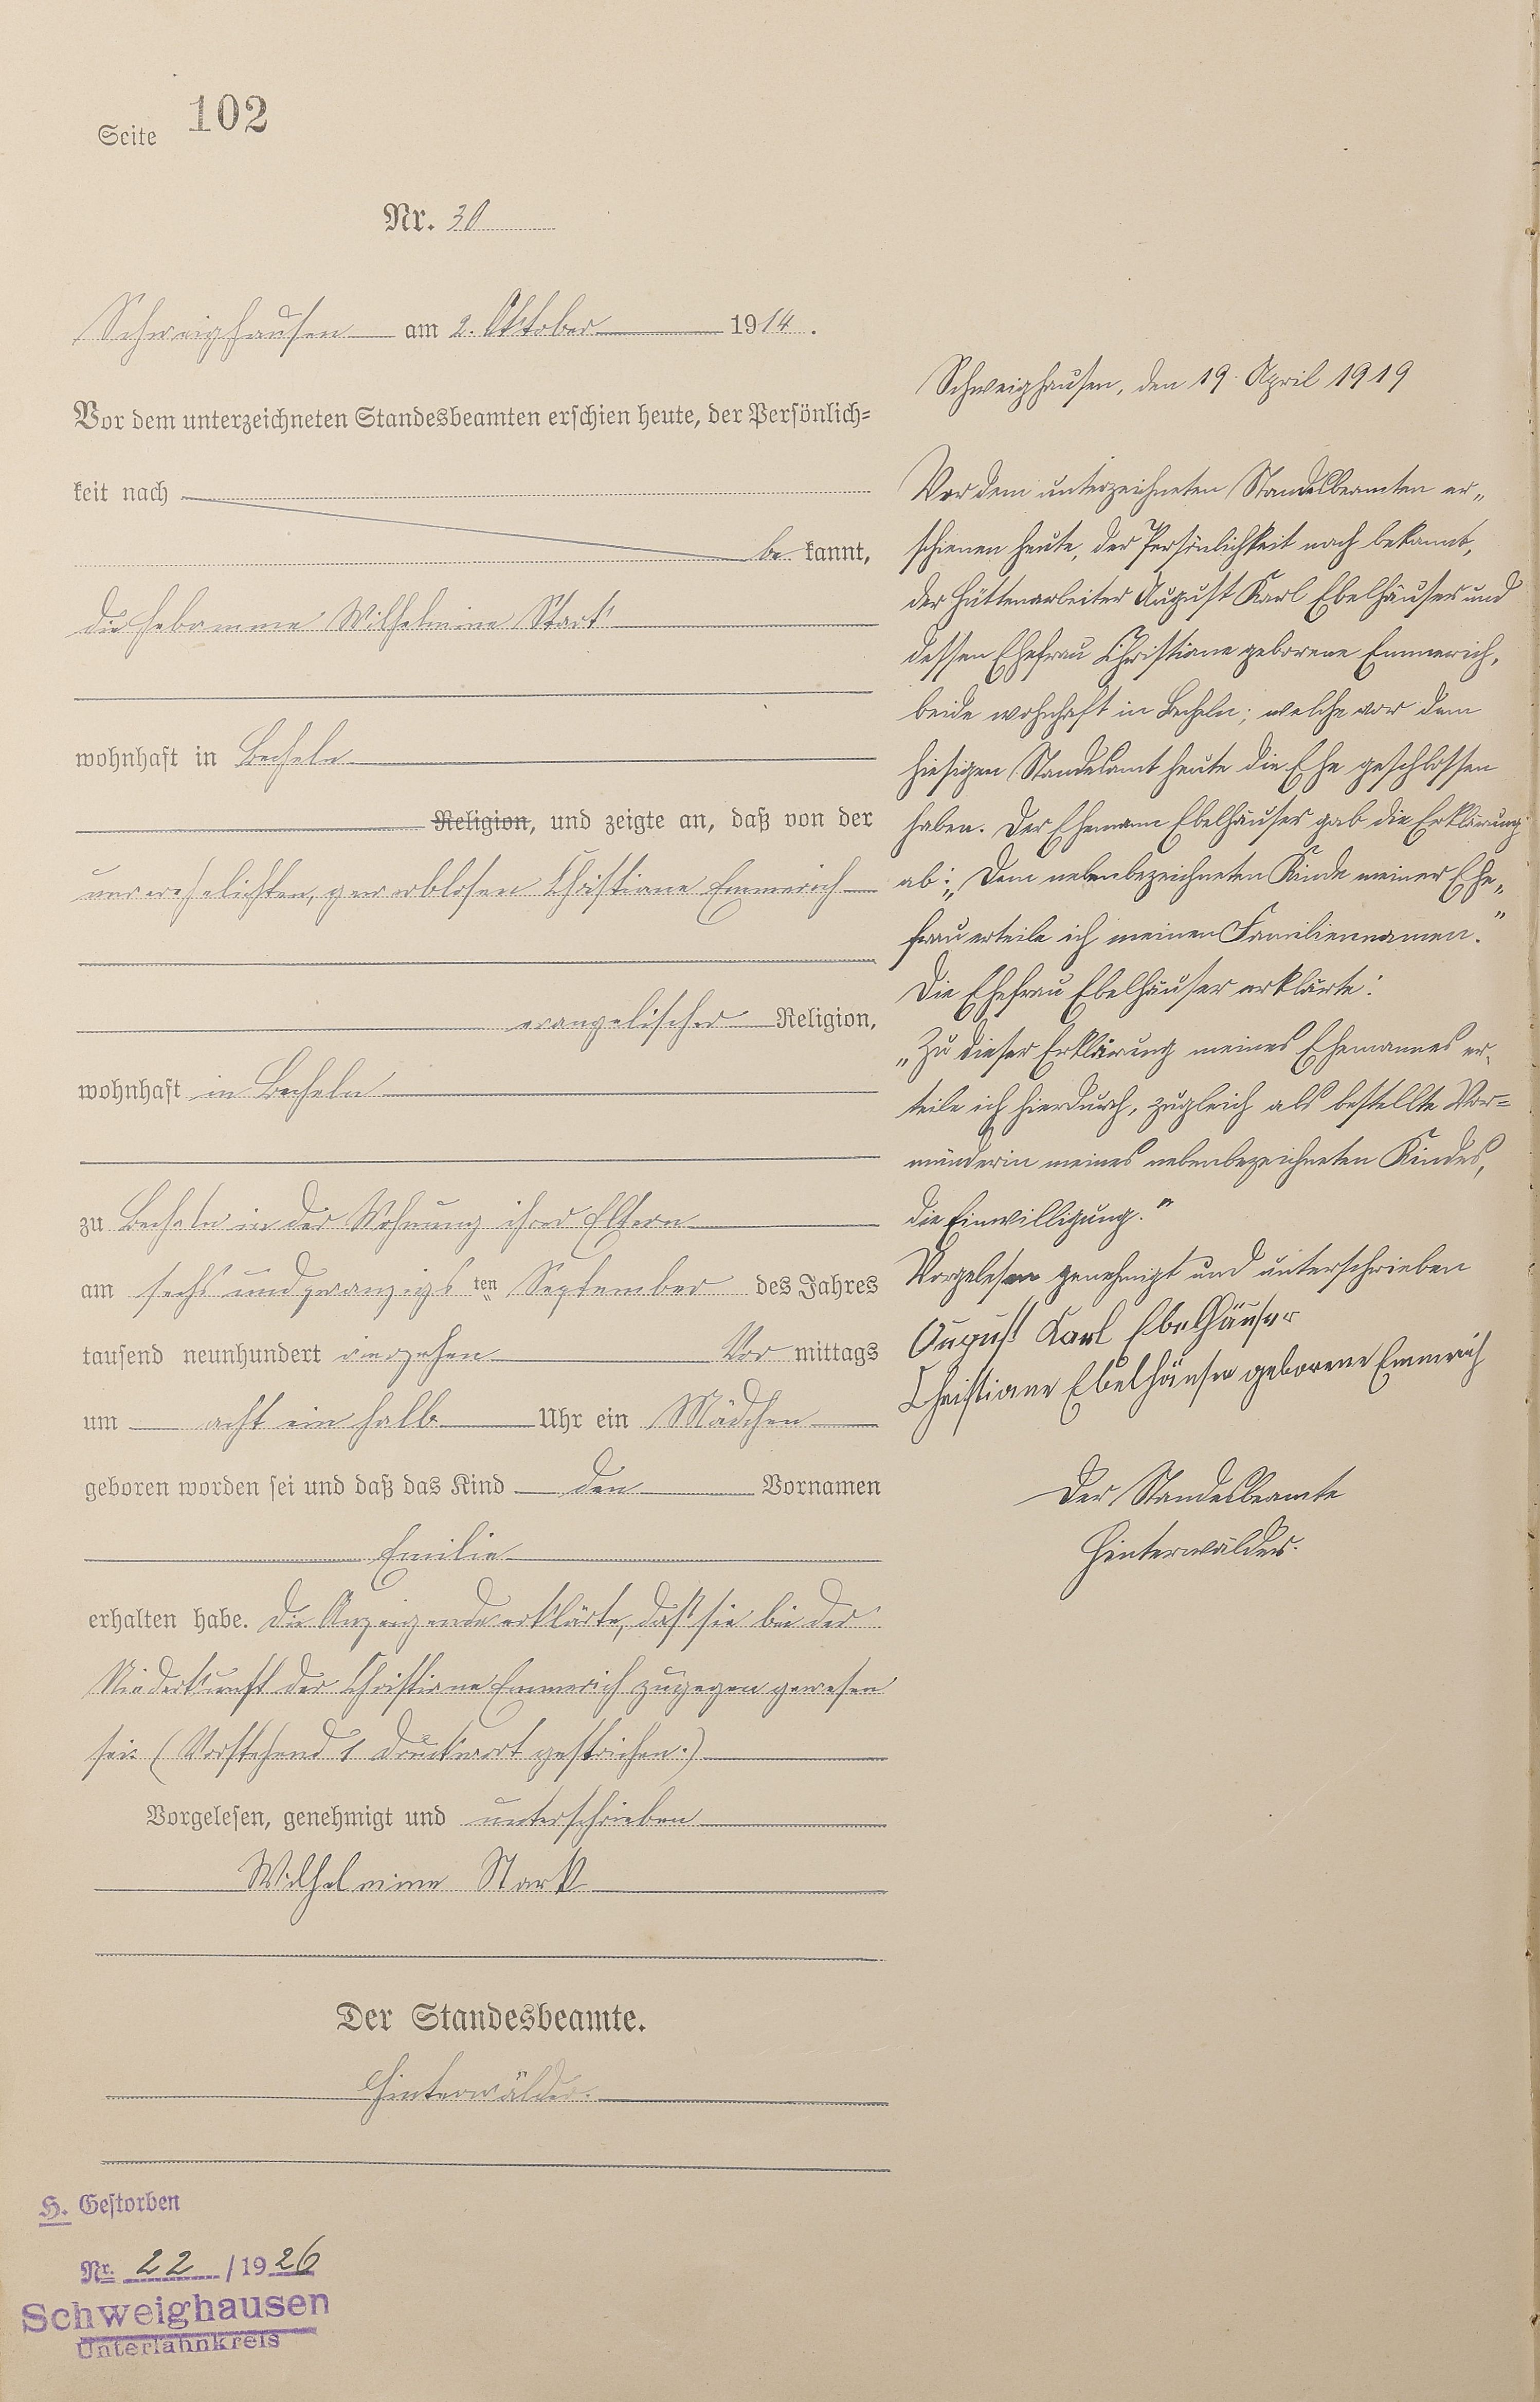 Seite 102
Nr. 30
Schweighausen am 2. Oktober 1914.
Vor dem unterzeichneten Standesbeamten erschien heute, der Persönlich=
keit nach
be kannt,
die Hebamme Wilhelmine Stark
wohnhaft in Becheln
Religion, und zeigte an, daß von der
unverehelichten, gewerblosen Christiane Emmerich
evangelischer Religion,
wohnhaft in Becheln
zu Becheln in der Wohnung ihrer Eltern
am sechs und zwanzigs ten September des Jahres
tausend neunhundert vierzehen Vor mittags
um acht ein halb Uhr ein Mädchen
geboren worden sei und daß das Kind den Vornamen
Emilie
erhalten habe. Die Anzeigende erklärte, daß sie bei der
Niederkunft der Christiane Emmerich zugegen gewesen
sei. (Vorstehend 1 Druckwort gestrichen.)
Vorgelesen, genehmigt und unterschrieben
Wilhelmine Stark
Der Standesbeamte.
Hinterwälder.
H. Gestorben
Nr. 22 /1926
Schweighausen
Unterlahnkreis
Schweighausen, den 19. April 1919
Vor dem unterzeichneten Standesbeamten er„
schienen heute, der Persönlichkeit nach bekannt,
der Hüttenarbeiter August Karl Ebelhäuser und
dessen Ehefrau Christiane geborene Emmerich,
beide wohnhaft in Becheln; welche vor dem
hiesigen Standesamt heute die Ehe geschlossen
haben. Der Ehemann Ebelhäuser gab die Erklärung
ab: „Dem nebenbezeichneten Kinde meiner Ehe„
frau erteile ich meinen Familiennamen."
Die Ehefrau Ebelhäuser erklärte:
„Zu dieser Erklärung meines Ehemannes er„
teile ich hierdurch, zugleich als bestellte Vor=
münderin meines nebenbezeichneten Kindes,
die Einwilligung."
Vorgelesen genehmigt und unterschrieben
August Karl Ebelhäuser
Christiane Ebelhäuser geborene Emmerich
Der Standesbeamte
Hinterwälder.